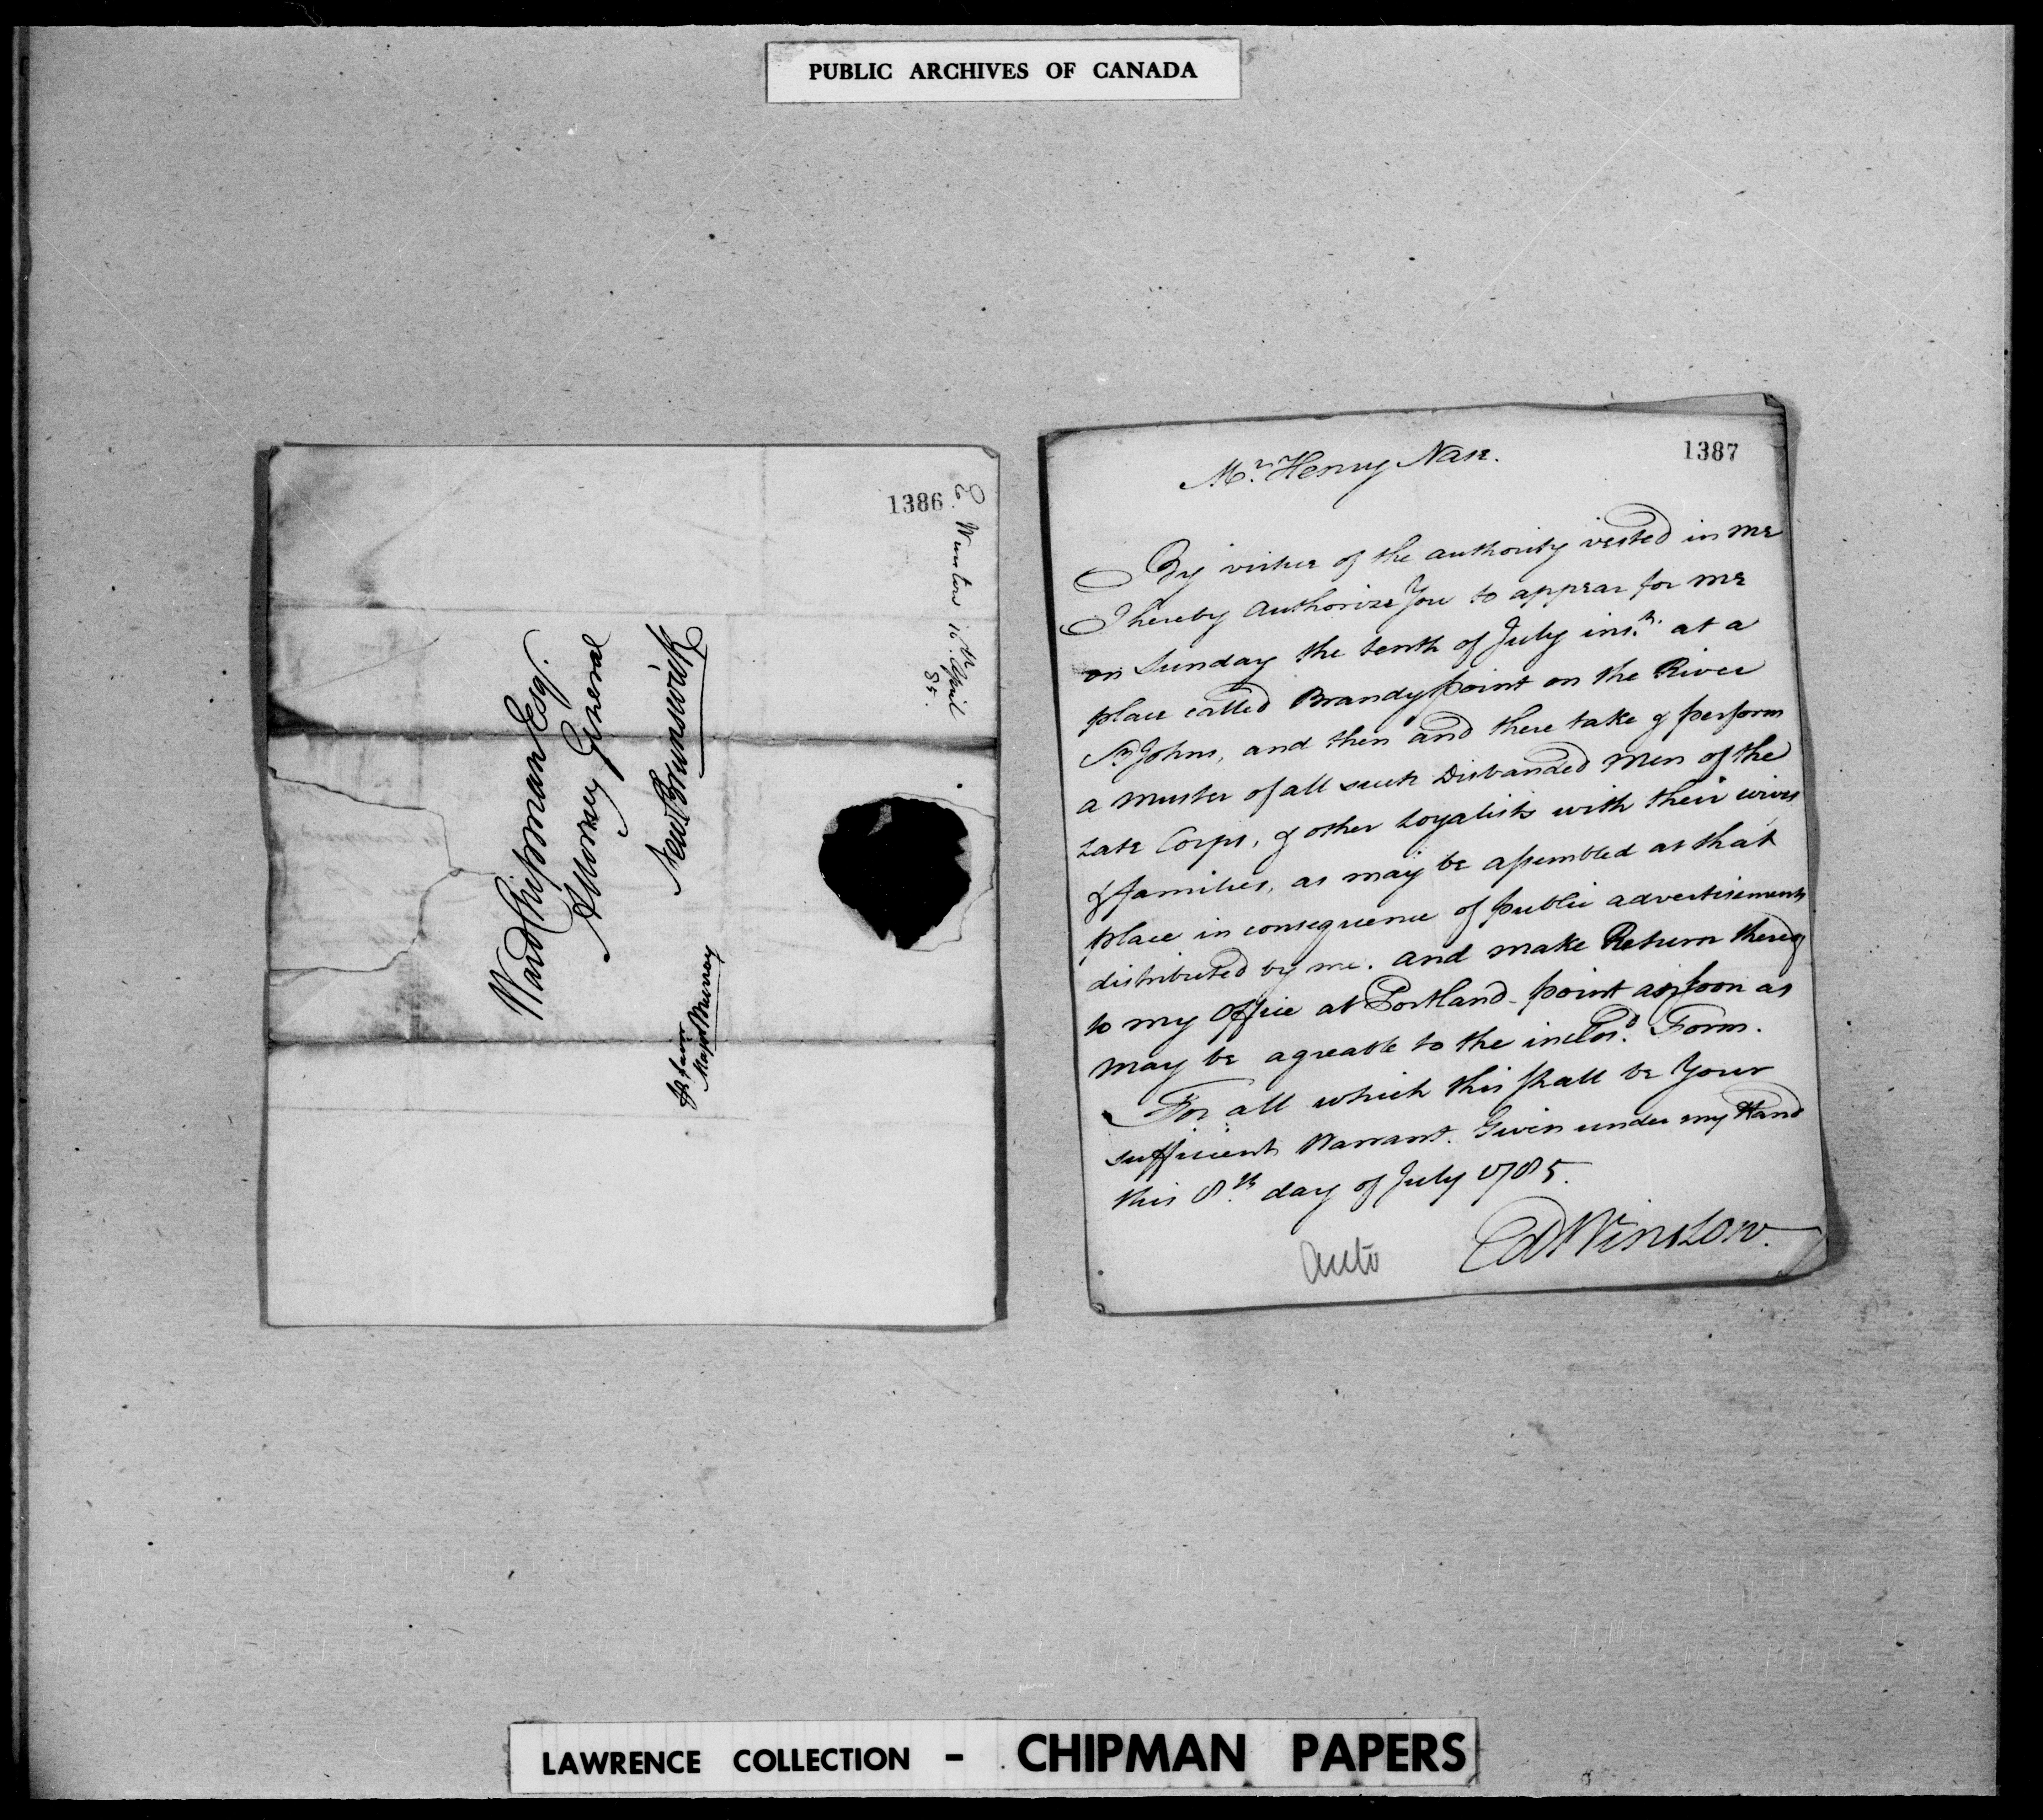 PUBLIC ARCHIVES OF CANADA
1386
E. Winslow 16th April
85.
Ward Chipman Esqr.
Attorney General
New Brunswick
Majr Murray
1387
Mr. Henry Nase.
By virtue of the authority vested in me
I hereby authorize You to appear for me
on Sunday the tenth of July inst. at a
place called Brandy point on the River
St. Johns, and then and there take & perform
a muster of all such Disbanded Men of the
Late Corps, & other Loyalists with their wives
& families, as may be assembled at that
place in consequence of public advertisements
distributed by me. and make Return thereof
to my Office at Portland-point as soon as
may be agreable to the inclos'd. Form.
For all which this shall be Your
sufficient Warrant. Given under my Hand
this 8.th day of July 1785.
Ed Winslow.
auto
LAWRENCE COLLECTION - CHIPMAN PAPERS